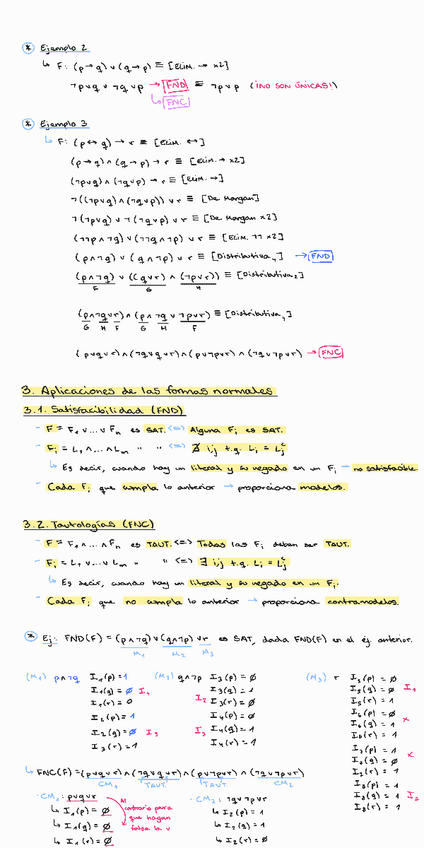 * Ejemplo 2
↳ F: (p → q) ∨ (q → p) ≡ [Elim. → x2]
¬p ∨ q ∨ ¬q ∨ p → FND ≡ ¬p ∨ p (¡NO SON ÚNICAS!)
↳ FNC
* Ejemplo 3
↳ F: (p ↔ q) → r ≡ [Elim. ↔]
(p → q) ∧ (q → p) → r ≡ [Elim. → x2]
(¬p ∨ q) ∧ (¬q ∨ p) → r ≡ [Elim. →]
¬((¬p ∨ q) ∧ (¬q ∨ p)) ∨ r ≡ [De Morgan]
¬(¬p ∨ q) ∨ ¬(¬q ∨ p) ∨ r ≡ [De Morgan x2]
(¬¬p ∧ ¬q) ∨ (¬¬q ∧ ¬p) ∨ r ≡ [Elim. ¬¬ x2]
(p ∧ ¬q) ∨ (q ∧ ¬p) ∨ r ≡ [Distributiva₁] → FND
(p ∧ ¬q) ∨ ((q ∨ r) ∧ (¬p ∨ r)) ≡ [Distributiva₂]
F G H
(p ∧ ¬q ∨ r) ∧ (p ∧ ¬q ∨ ¬p ∨ r) ≡ [Distributiva₁]
G H F G H F
(p ∨ q ∨ r) ∧ (¬q ∨ q ∨ r) ∧ (p ∨ ¬p ∨ r) ∧ (¬q ∨ ¬p ∨ r) → FNC
3. Aplicaciones de las formas normales
3.1. Satisfacibilidad (FND)
- F = F₁ ∨ ... ∨ Fₙ es SAT. <=> Alguna Fᵢ es SAT.
- Fᵢ = L₁ ∧ ... ∧ Lₘ " " <=> ∄ i,j t.q. Lᵢ = Lⱼᶜ
↳ Es decir, cuando hay un literal y su negado en un Fᵢ → no satisfacible
- Cada Fᵢ que cumpla lo anterior → proporciona modelos.
3.2. Tautologías (FNC)
- F = F₁ ∧ ... ∧ Fₙ es TAUT. <=> Todas las Fᵢ deben ser TAUT.
- Fᵢ = L₁ ∨ ... ∨ Lₘ " " <=> ∃ i,j t.q. Lᵢ = Lⱼᶜ
↳ Es decir, cuando hay un literal y su negado en un Fᵢ.
- Cada Fᵢ que no cumpla lo anterior → proporciona contramodelos.
* Ej: FND(F) = (p ∧ ¬q) ∨ (q ∧ ¬p) ∨ r es SAT, dada FND(F) en el ej. anterior.
M₁ M₂ M₃
(M₁) p ∧ ¬q I₁(p) = 1 (M₂) q ∧ ¬p I₃(p) = 0 (M₃) r I₅(p) = 0
I₁(q) = 0 I₁ I₃(q) = 1 I₅(q) = 0 I₄
I₁(r) = 0 I₂ I₃(r) = 0 I₅(r) = 1
I₂(p) = 1 I₄(p) = 0 I₆(p) = 0
I₂(q) = 0 I₃ I₃ I₄(q) = 1 I₆(q) = 1 x
I₂(r) = 1 I₄(r) = 1 I₆(r) = 1
I₇(p) = 1
I₇(q) = 0 x
I₇(r) = 1
I₈(p) = 1
I₈(q) = 1
I₈(r) = 1
↳ FNC(F) = (p ∨ q ∨ r) ∧ (¬q ∨ q ∨ r) ∧ (p ∨ ¬p ∨ r) ∧ (¬q ∨ ¬p ∨ r)
CM₁ TAUT. TAUT. CM₂
· CM₁: p ∨ q ∨ r · CM₂: ¬q ∨ ¬p ∨ r
↳ I₁(p) = 0 contrario para que hagan falsa la ∨ ↳ I₂(p) = 1
↳ I₁(q) = 0 ↳ I₂(q) = 1
↳ I₁(r) = 0 ↳ I₂(r) = 0